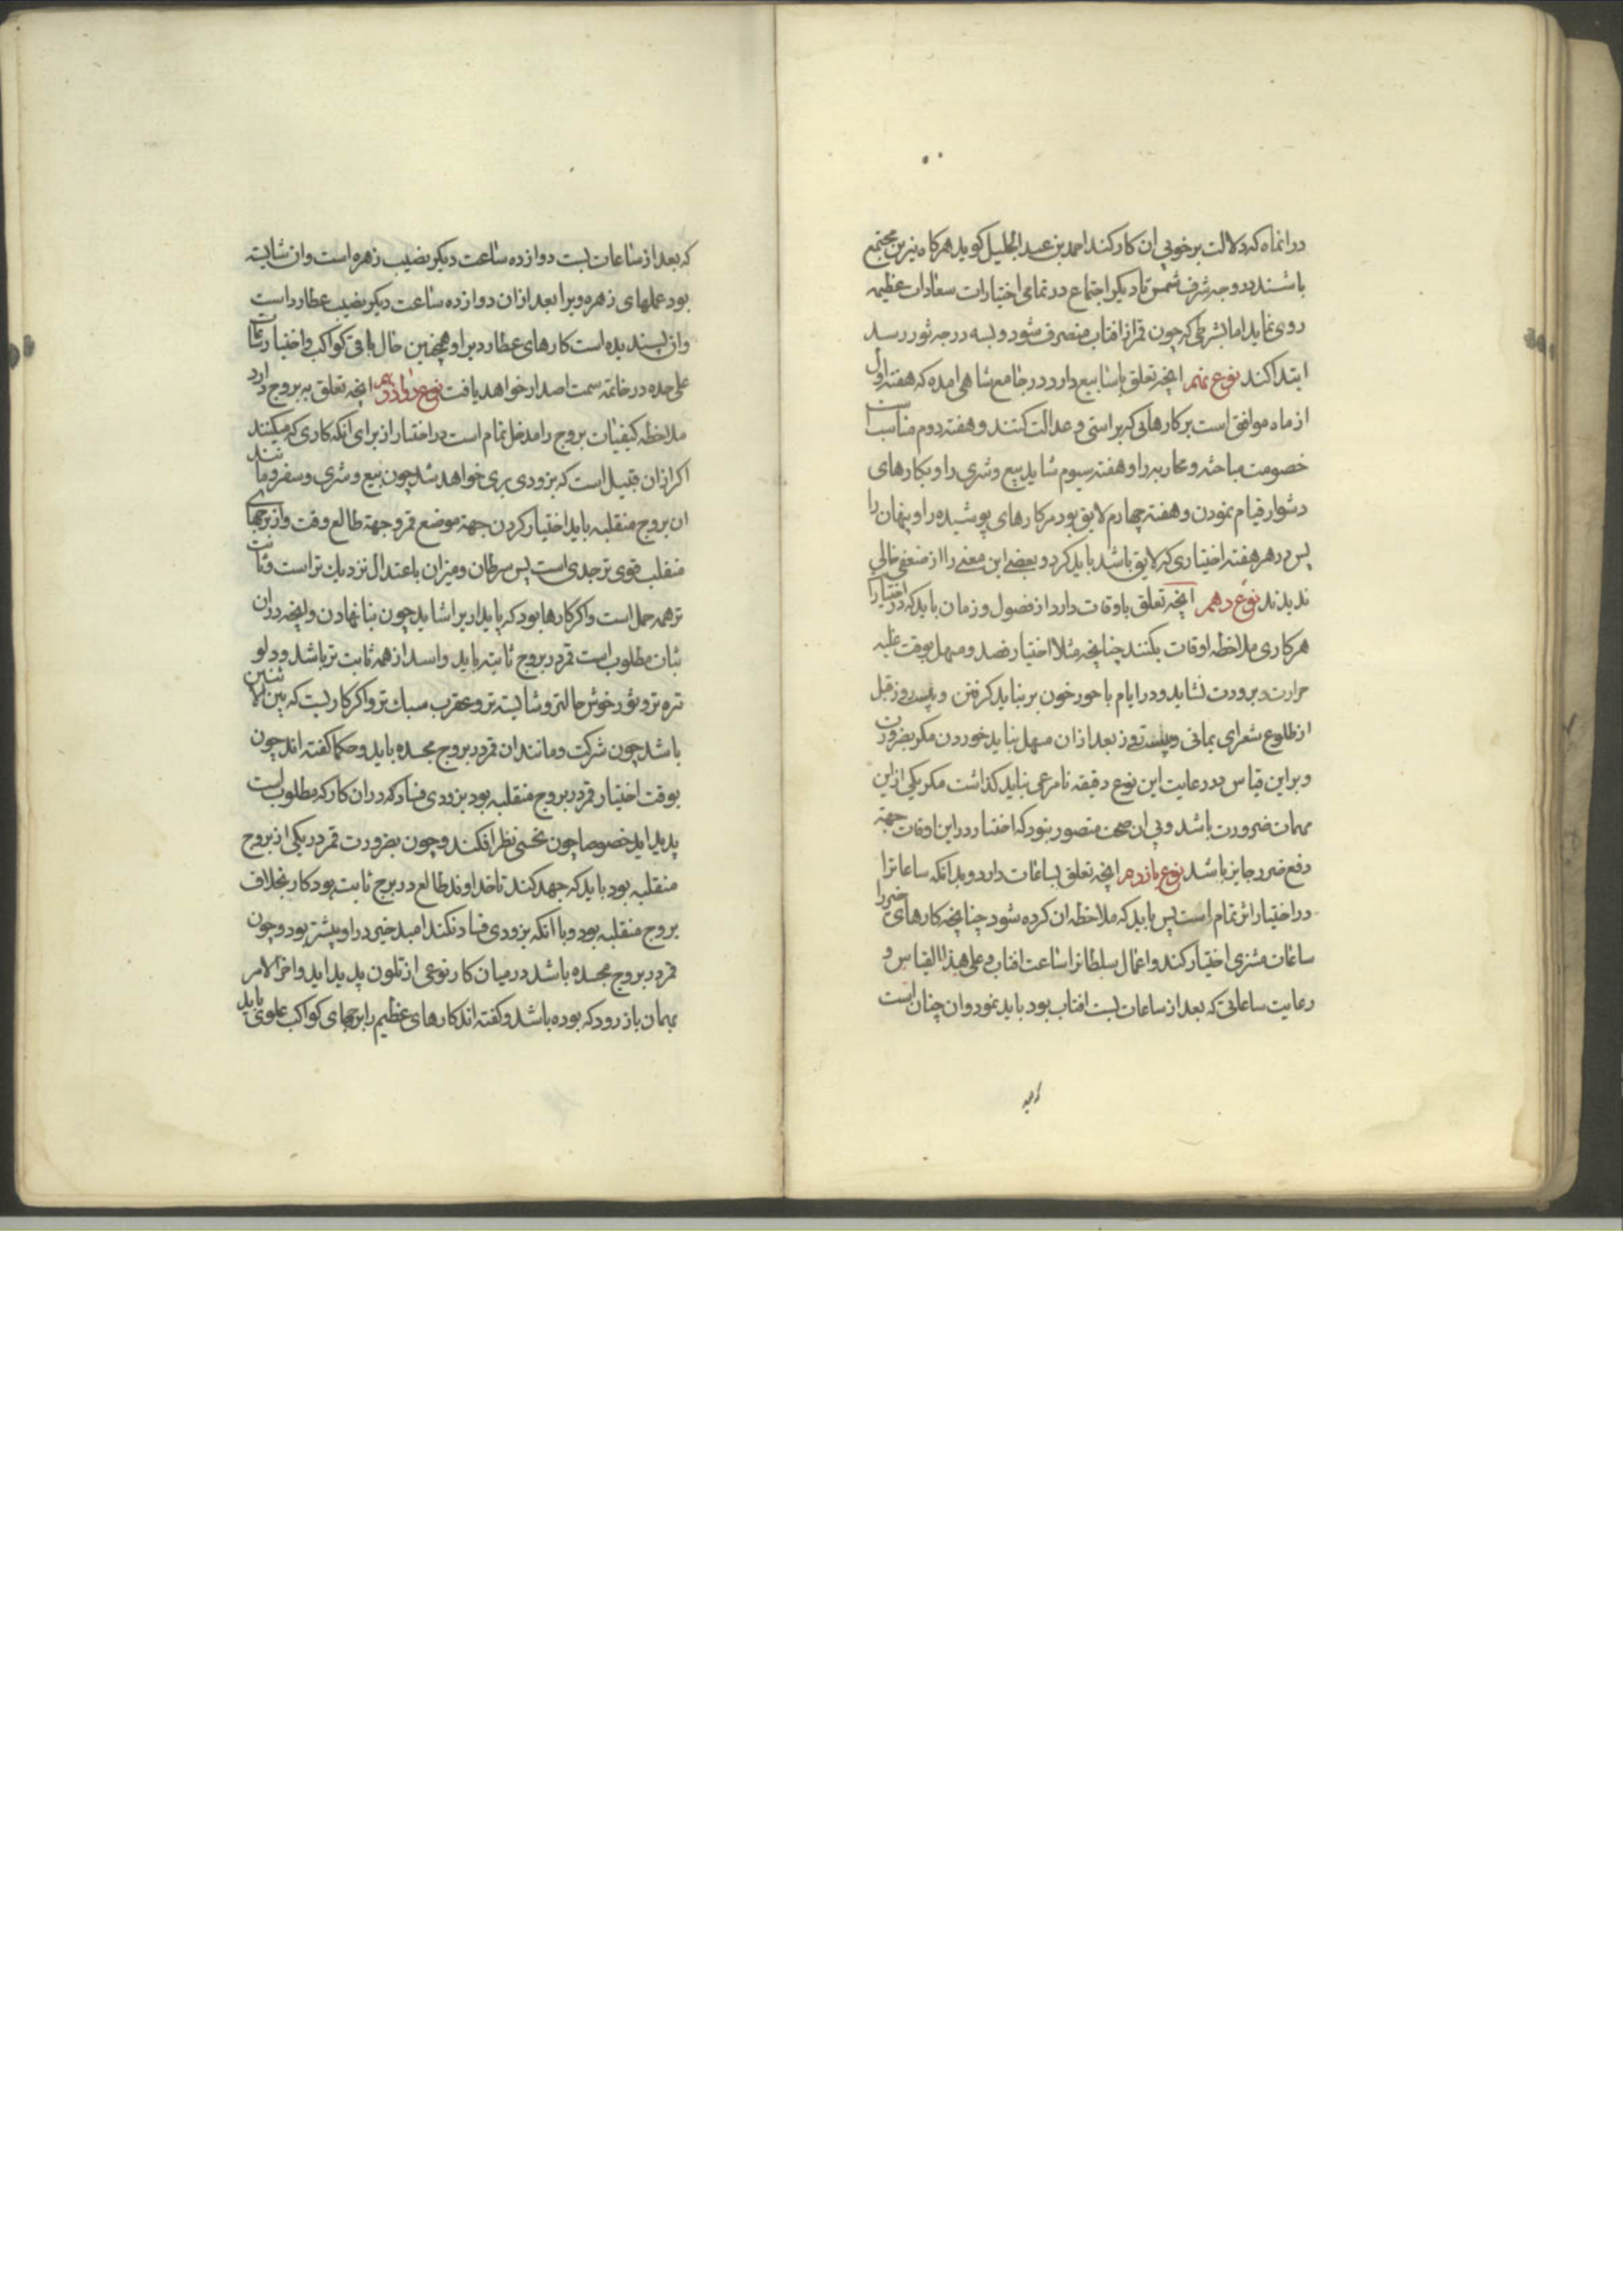 در انماه که دلالت بر خوبی ان کار کند احمد بن عبد الجلیل کوید هرکاه نیرین مجتمع
باشند در وجه شرف شمس تا دیکر اجتماع در تمامی اختیارات سعادات عظیمه
روی نماید اما بشرطی که چون قمر از افتاب منصرف شود و بسه درجه ثور رسد
ابتدا کند نوع نهم انچه تعلق باسابیع دارد در جامع شاهی امده که هفته اول
از ماه موافق است بر کارهایی که براستی و عدالت کنند و هفته دوم مناسب است
خصومت مباحثه و محاربه را و هفته سیوم شاید بیع و شری را و بکارهای
دشوار قیام نمودن و هفته چهارم لایق بود مر کارهای پوشیده را و پنهان را
پس در هر هفته اختیاری که لایق باشد باید کرد و بعضی این معنی را از ضعفی خالی
ندیدند نوع دهم انچه تعلق باوقات دارد از فصول و زمان باید که در اختیارا
هر کاری ملاحظه اوقات بکنند چنانچه مثلا اختیار فصد و مسهل بوقت غلبه
حرارت و برودت نشاید و در ایام باحور خون بر نباید کرفتن و بیست روز قبل
از طلوع شعرای یمانی و بیست روز بعد از ان مسهل نباید خوردن مکر بضرورت
و بر این قیاس در رعایت این نوع دقیقه نامرعی نباید کذاشت مکر یکی از این
مهمات ضرورت باشد و بی ان صحت متصور نبود که اختیار در این اوقات جهة
دفع ضرر جایز باشد نوع یازدهم انچه تعلق بساعات دارد و بدانکه ساعاترا
در اختیار اثر تمام است پس باید که ملاحظه ان کرده شود چنانچه کارهای خیر را
ساعات مشتری اختیار کند و اعمال سلطانرا ساعت افتاب و علی هذا القیاس و
رعایت ساعاتی که بعد از ساعات بست افتاب بود باید نمود و ان چنان است
که بعد
که بعد از ساعات بست دوازده ساعت دیکر نصیب زهره است و ان شایسته
بود عملهای زهره ویرا بعد از ان دوازده ساعت دیکر نصیب عطارد است
وان پسندیده است کارهای عطارد بر او همچنین حال باقی کواکب و اختیار ساعات
علی حده در خاتمه سمت اصدار خواهد یافت نوع دوازدهم انچه تعلق به بروج دارد
ملاحظه کیفیات بروج را مدخل تمام است در اختیار از برای انکه کاری که میکنند
اکر از ان قبیل است که بزودی بری خواهد شد چون بیع و شری و سفر و مانند
ان بروج منقلبه باید اختیار کردن جهة موضع قمر و جهة طالع وقت و از برجهای
منقلب قوی تر جدی است پس سرطان و میزان باعتدال نزدیک تر است و ثابت
تر همه حمل است و اکر کارها بود که پایدار یرا شاید چون بنا نهادن و انچه در ان
ثبات مطلوب است قمر در بروج ثابته باید و اسد از همه ثابت تر باشد و دلو
تره تر و ثور خوش حالتر و شایسته تر و عقرب سبک تر و اکر کاریست که بین الاثنین
باشد چون شرکت و مانند ان قمر در بروج مجسده باید و حکما کفته اند چون
بوقت اختیار قمر در بروج منقلبه بود بزودی فساد که در ان کار که مطلوبست
پدید اید خصوصا چون نحسی نظر افکند و چون بضرورت قمر در یکی از بروج
منقلبه بود باید که جهد کند تا خداوند طالع در برج ثابت بود کار بخلاف
بروج منقلبه بود و با انکه بزودی فساد نکند امید خیر در او بیشتر بود و چون
قمر در بروج مجسده باشد در میان کار نوعی از تلون پدید اید و اخر الامر
بهمان باز رود که بوده باشد و کفته اند کارهای عظیم را برجهای کواکب علوی باید